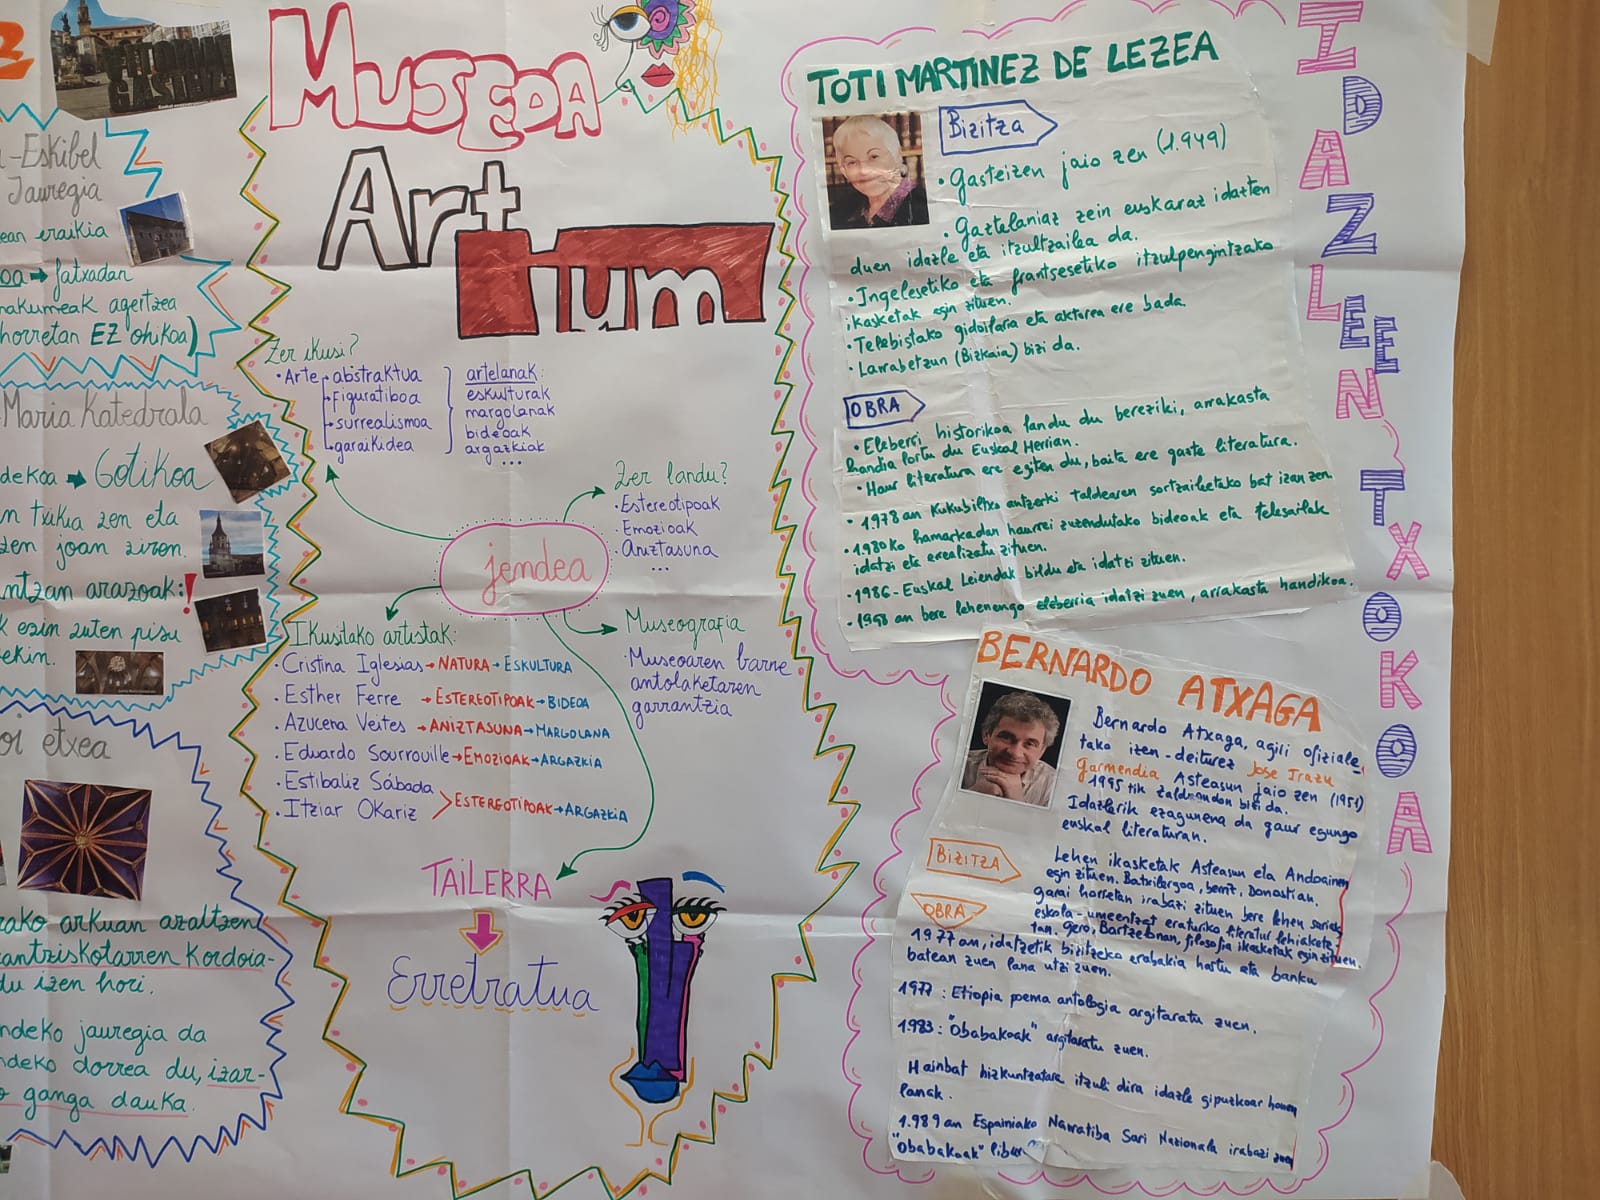 VITORIA
GASTEIZ
-Eskibel
Jauregia
ean eraikia
oa → fatxadan
nakumeak agertzea
horretan EZ ohikoa)
Maria Katedrala
dekoa → Gotikoa
n txikia zen eta
zen joan ziren.
ntzan arazoak:!
k ezin zuten pisu
ekin.
oi etxea
rako arkuan azaltzen
antziskotarren Kordoia-
du izen hori.
ndeko jauregia da
ndeko dorrea du, izar-
o ganga dauka.
MUSEOA
Artium
Zer ikusi?
• Arte → abstraktua
→ Figuratiboa
→ surrealismoa
→ garaikidea
artelanak:
eskulturak
margolanak
bideoak
argazkiak
...
Zer landu?
• Estereotipoak
• Emozioak
• Aniztasuna
...
jendea
Museografia
• Museoaren barne
antolaketaren
garrantzia
Ikusitako artistak:
• Cristina Iglesias → NATURA → ESKULTURA
• Esther Ferre → ESTEREOTIPOAK → BIDEOA
• Azucena Veites → ANIZTASUNA → MARGOLANA
• Eduardo Sourrouille → EMOZIOAK → ARGAZKIA
• Estibaliz Sábada
• Itziar Okariz > ESTEREOTIPOAK → ARGAZKIA
TAILERRA
Erretratua
IDAZLEEN TXOKOA
TOTI MARTINEZ DE LEZEA
Bizitza
• Gasteizen jaio zen (1.949)
• Gaztelaniaz zein euskaraz idazten
duen idazle eta itzultzailea da.
• Ingelesetiko eta frantsesetiko itzulpengintzako
ikasketak egin zituen.
• Telebistako gidoilaria eta aktorea ere bada.
• Larrabetzun (Bizkaia) bizi da.
OBRA
• Eleberri historikoa landu du bereziki, arrakasta
handia lortu du Euskal Herrian.
• Haur literatura ere egiten du, baita ere gazte literatura.
• 1978an Kukubiltxo antzerki taldearen sortzaileetako bat izan zen
• 1980ko hamarkadan haurrei zuzendutako bideoak eta telesailak
idatzi eta errealizatu zituen.
• 1986 - Euskal Leiendak bildu eta idatzi zituen.
• 1998an bere lehenengo eleberria idatzi zuen, arrakasta handikoa.
BERNARDO ATXAGA
Bernardo Atxaga, agiri ofiziale-
tako izen-deiturez Jose Irazu
Garmendia Asteasun jaio zen (1951)
1995tik Zalduondon bizi da.
Idazlerik ezagunena da gaur egungo
euskal literaturan.
BIZITZA
Lehen ikasketak Asteasun eta Andoainen
egin zituen. Batxilergoa, berriz, Donostian.
garai horretan irabazi zituen bere lehen sariak
eskola-umeentzat eraturiko literatur lehiakete-
tan. Gero, Bartzelonan, filosofia ikasketak egin zituen.
OBRA
1977an, idatzetik bizitzeko erabakia hartu eta banku
batean zuen lana utzi zuen.
1977: Etiopia poema antologia argitaratu zuen.
1983: "Obabakoak" argitaratu zuen.
Hainbat hizkuntzatara itzuli dira idazle gipuzkoar honen
lanak.
1.989an Espainiako Narratiba Sari Nazionala irabazi zuen
"Obabakoak"